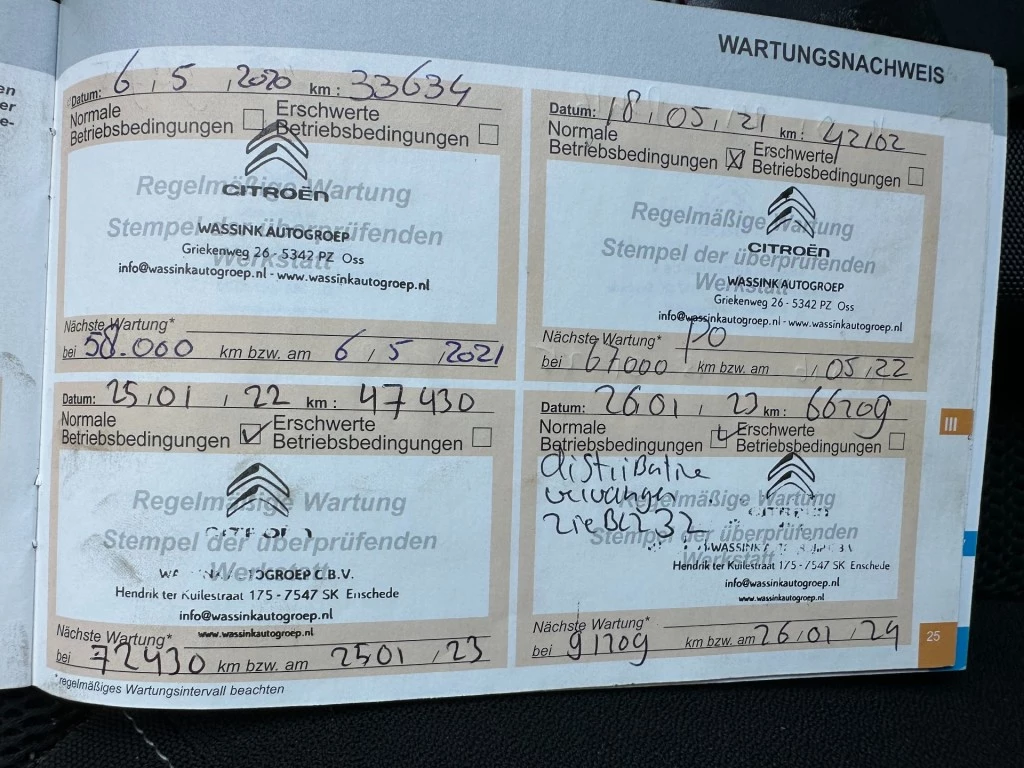 WARTUNGSNACHWEIS
en
er
e-
Datum: 6 , 5 , 2020 km : 33634
Normale Betriebsbedingungen
Erschwerte Betriebsbedingungen
Regelmäßige Wartung
CITROËN
Stempel der überprüfenden
WASSINK AUTOGROEP
Werkstatt
Griekenweg 26 - 5342 PZ Oss
info@wassinkautogroep.nl - www.wassinkautogroep.nl
Nächste Wartung*
bei 58.000 km bzw. am 6 , 5 , 2021
Datum: 18 , 05 , 21 km : 42102
Normale Betriebsbedingungen
Erschwerte Betriebsbedingungen
Regelmäßige Wartung
CITROËN
Stempel der überprüfenden
Werkstatt
WASSINK AUTOGROEP
Griekenweg 26 - 5342 PZ Oss
info@wassinkautogroep.nl - www.wassinkautogroep.nl
Nächste Wartung*
bei 67000 km bzw. am , 05 , 22
Datum: 25 , 01 , 22 km : 47430
Normale Betriebsbedingungen
Erschwerte Betriebsbedingungen
Regelmäßige Wartung
Stempel der überprüfenden
Werkstatt
Hendrik ter Kuilestraat 175 - 7547 SK Enschede
info@wassinkautogroep.nl
www.wassinkautogroep.nl
Nächste Wartung*
bei 72430 km bzw. am 25 01 , 23
*regelmäßiges Wartungsintervall beachten
Datum: 26 01 , 23 km : 66209
Normale Betriebsbedingungen
Erschwerte Betriebsbedingungen
distributie
Regelmäßige Wartung
Stempel der überprüfenden
WASSINK
Werkstatt
Hendrik ter Kuilestraat 175 - 7547 SK Enschede
info@wassinkautogroep.nl
www.wassinkautogroep.nl
Nächste Wartung*
bei 91209 km bzw. am 26 , 01 , 24
III
25